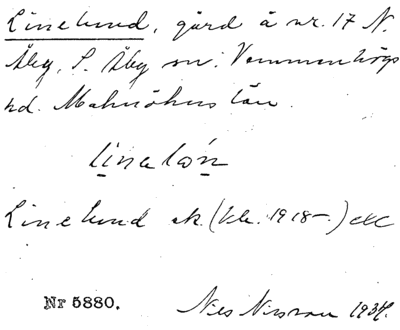 Linelund, gård å nr. 17 N.
Åby, S. Åby sn; Vemmenhögs
hd. Malmöhus län.
Linelund ek. (bb. 1918-) etc
Nr 5880.
Nils Nilsson 1934.